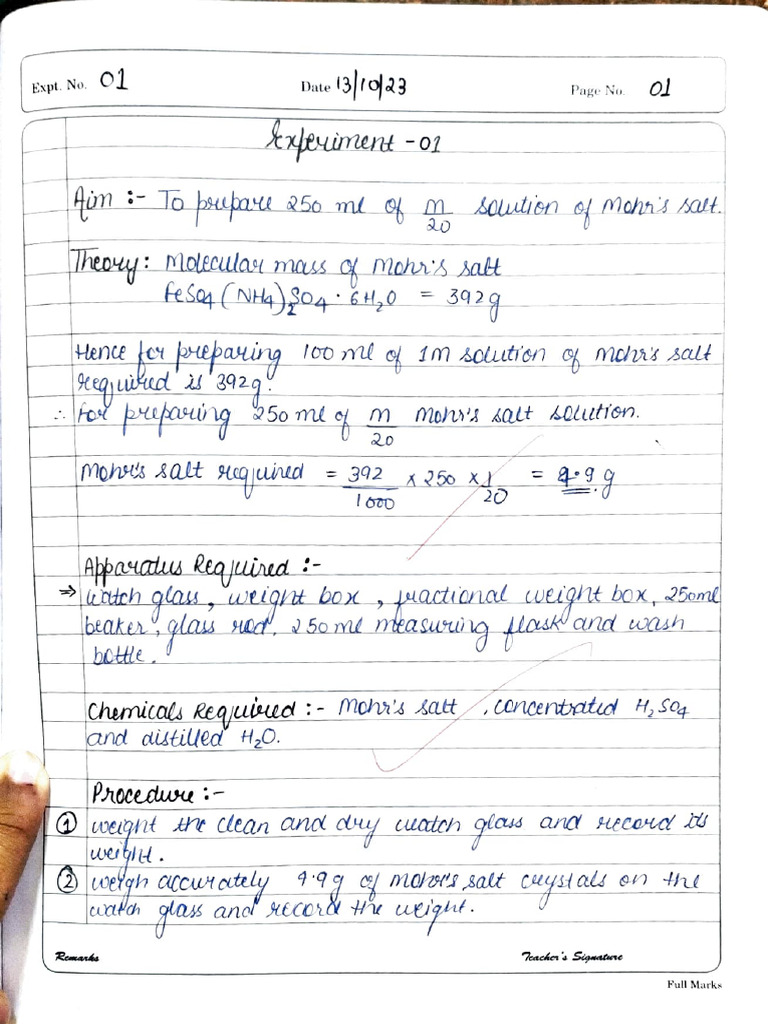 Expt. No. 01 Date 13/10/23 Page No. 01
Experiment -01
Aim :- To prepare 250 ml of m/20 solution of Mohr's salt.
Theory: Molecular mass of Mohr's salt
FeSO4(NH4)2SO4·6H2O = 392g
Hence for preparing 100 ml of 1M solution of Mohr's salt
required is 392g.
∴ For preparing 250 ml of m/20 Mohr's salt solution.
Mohr's salt required = 392/1000 × 250 × 1/20 = 4.9 g
Apparatus Required :-
⇒ watch glass, weight box, fractional weight box, 250ml
beaker, glass rod, 250 ml measuring flask and wash
bottle.
Chemicals Required :- Mohr's salt, concentrated H2SO4
and distilled H2O.
Procedure :-
① weight the clean and dry watch glass and record its
weight.
② weigh accurately 4.9g of Mohr's salt crystals on the
watch glass and record the weight.
Remarks Teacher's Signature
Full Marks